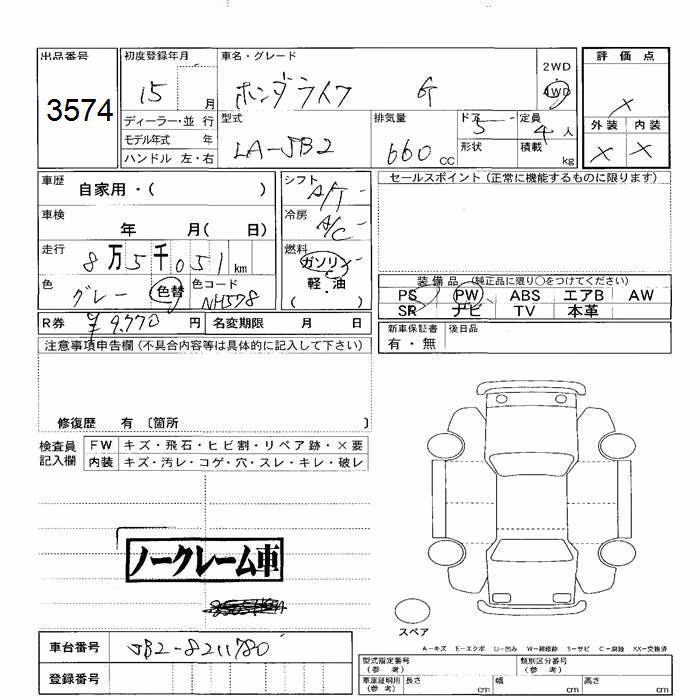 出品番号 初度登録年月 車名・グレード 評価点
3574 15 月 ホンダライフ G 2WD 4WD ×
ディーラー・並行 型式 排気量 ドア 5 定員 4人 外装 内装
モデル年式 年 LA-JB2 660cc 形状 積載 kg × ×
ハンドル 左・右
車歴 自家用・( ) シフト A/T セールスポイント (正常に機能するものに限ります)
車検 年 月( 日) 冷房 A/C
走行 8万5千051km 燃料 ガソリン 軽・油 ( )
色 グレー 色替 色コード NH578 装備品 (純正品に限り○をつけてください)
PS PW ABS エアB AW
SR ナビ TV 本革
R券 ¥9,770円 名変期限 月 日 新車保証書 有・無 後日品
注意事項申告欄(不具合内容等は具体的に記入して下さい)
修復歴 有 〔箇所 〕
検査員記入欄 FW キズ・飛石・ヒビ割・リペア跡・×要
内装 キズ・汚レ・コゲ・穴・スレ・キレ・破レ
ノークレーム車
スペア
A-キズ E-エクボ U-凹み W-補修跡 S-サビ C-腐蝕 XX-交換済
車台番号 JB2-8211780
登録番号
型式指定番号 (参考) 類別区分番号 (参考)
車庫証明用 (参考) 長さ cm 幅 cm 高さ cm